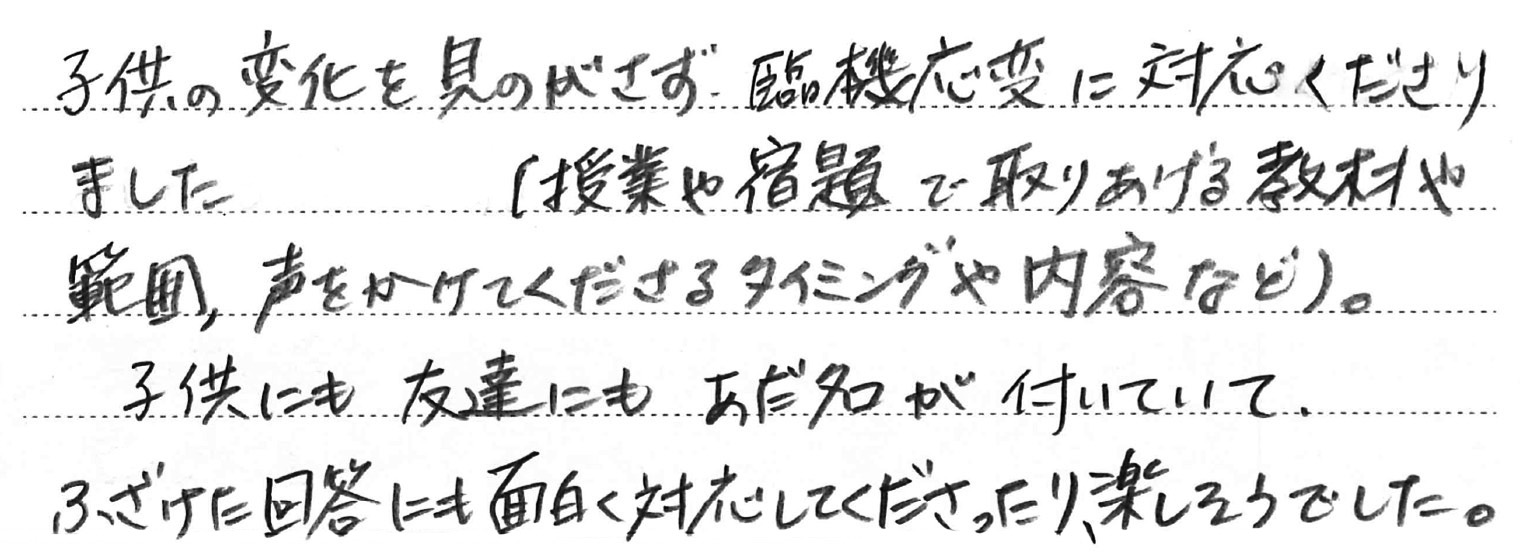 子供の変化を見のがさず、臨機応変に対応くださり
ました (授業や宿題で取りあげる教材や
範囲, 声をかけてくださるタイミングや内容など)。
子供にも 友達にも あだ名が 付いていて、
ふざけた回答にも面白く対応してくださったり、楽しそうでした。